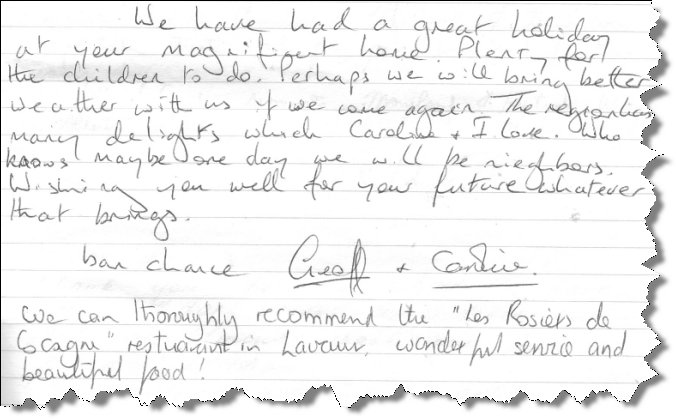 We have had a great holiday
at your magnificent home. Plenty for
the children to do. Perhaps we will bring better
weather with us if we come again. The region has
many delights which Caroline & I love. Who
knows maybe one day we will be nieghbors.
Wishing you well for your future whatever
that brings.
bon chance Geoff & Caroline.
We can thoroughly recommend the "Les Rosiers de
Cocagne" restuarant in Lavaur, wonderful service and
beautiful food!